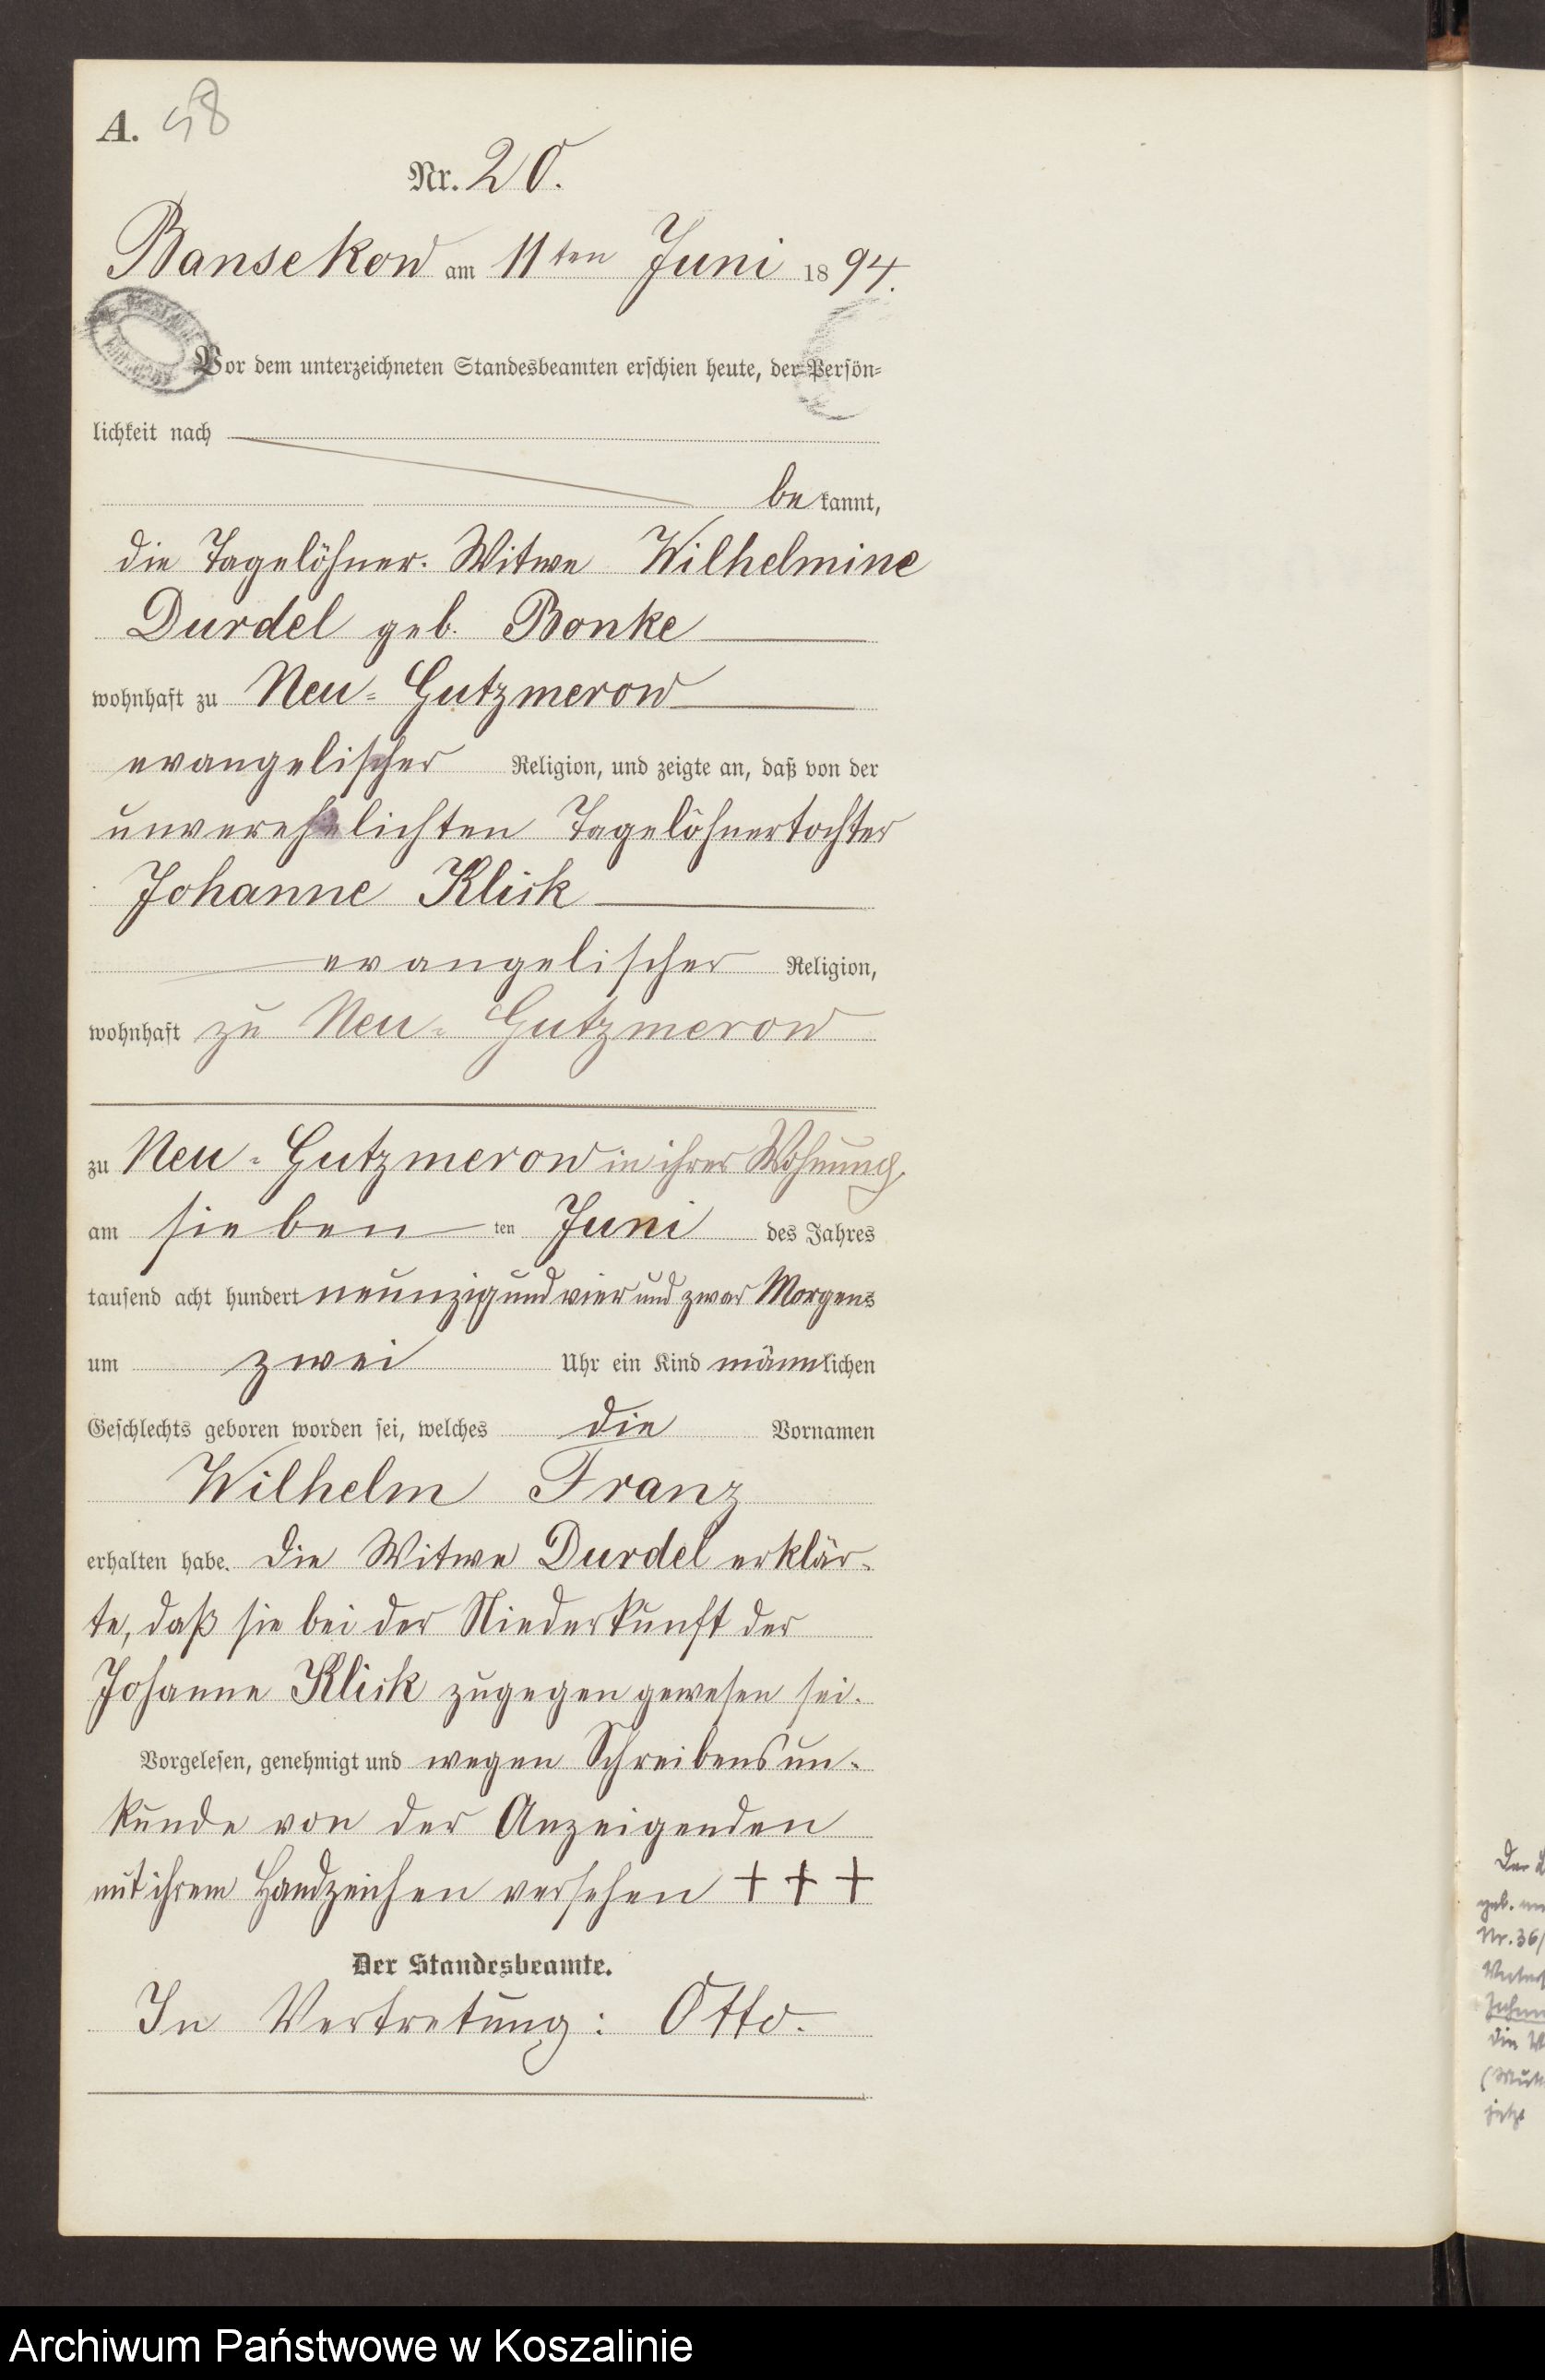 A. 58
Nr. 20.
Bansekow am 11ten Juni 1894.
Vor dem unterzeichneten Standesbeamten erschien heute, der Persön=
lichkeit nach
bekannt,
die Tagelöhner-Witwe Wilhelmine
Durdel geb. Bonke
wohnhaft zu Neu=Gutzmerow
evangelischer Religion, und zeigte an, daß von der
unverehelichten Tagelöhnertochter
Johanne Klick
evangelischer Religion,
wohnhaft zu Neu=Gutzmerow
zu Neu=Gutzmerow in ihrer Wohnung
am sieben ten Juni des Jahres
tausend acht hundert neunzig und vier und zwar Morgens
um zwei Uhr ein Kind männlichen
Geschlechts geboren worden sei, welches die Vornamen
Wilhelm Franz
erhalten habe. Die Witwe Durdel erklär-
te, daß sie bei der Niederkunft der
Johanne Klick zugegen gewesen sei.
Vorgelesen, genehmigt und wegen Schreibensun-
kunde von der Anzeigenden
mit ihrem Handzeichen versehen + + +
Der Standesbeamte.
In Vertretung: Otto.
Der
geb.
Nr. 36/
die
jetzt
Archiwum Państwowe w Koszalinie